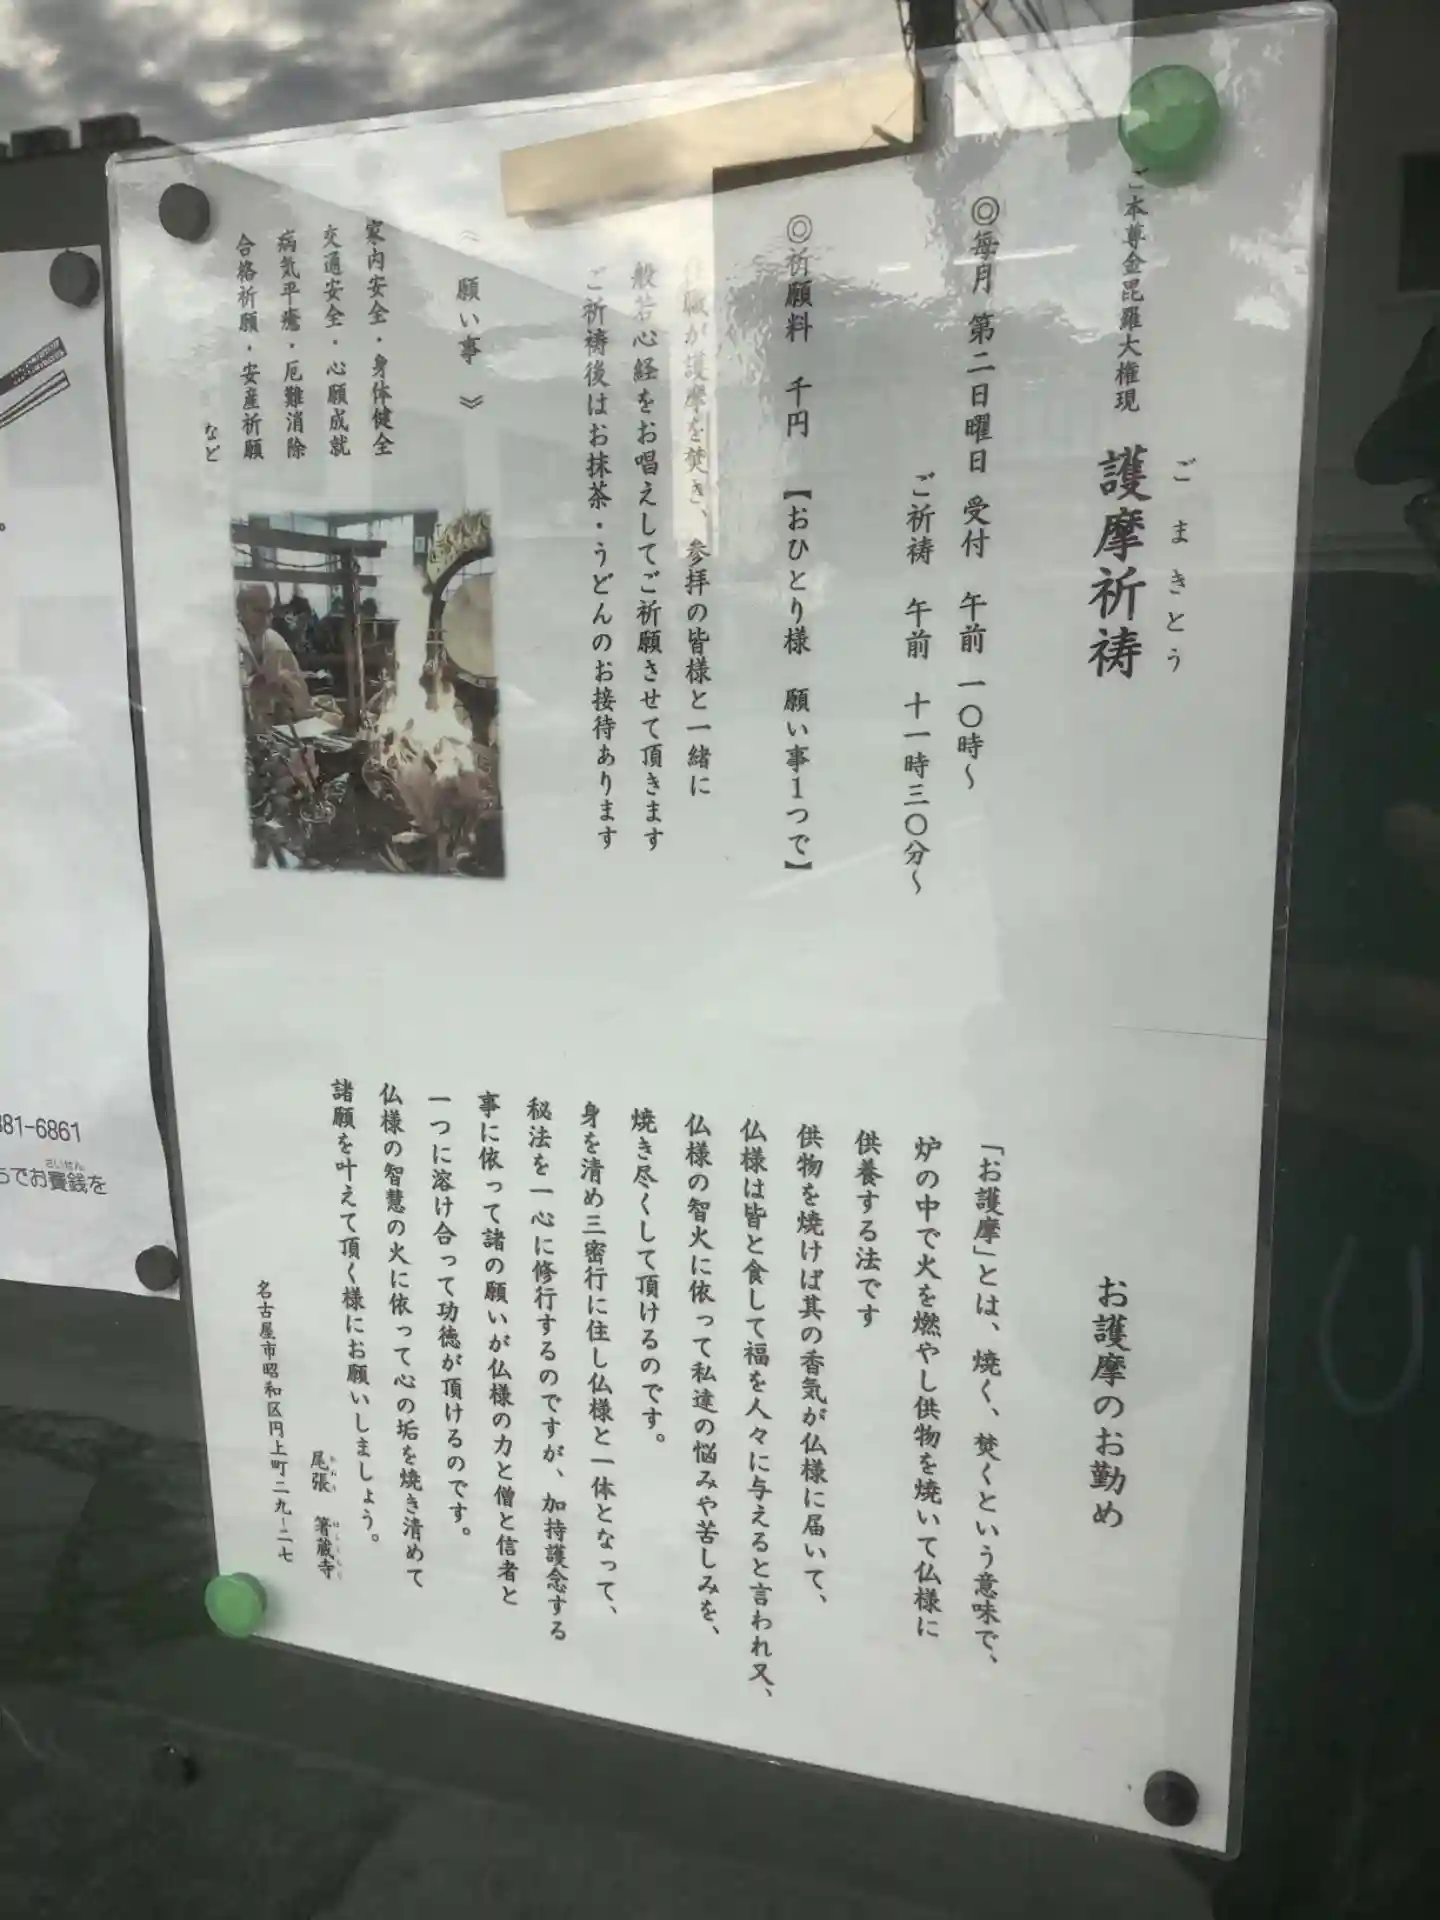 ご本尊金毘羅大権現 護摩祈祷
ごまきとう
◎毎月 第二日曜日 受付 午前 一〇時~
ご祈祷 午前 十一時三〇分~
◎祈願料 千円 【おひとり様 願い事1つで】
職が護摩を焚き、参拝の皆様と一緒に
般若心経をお唱えしてご祈願させて頂きます
ご祈祷後はお抹茶・うどんのお接待あります
《 願い事 》
家内安全・身体健全
交通安全・心願成就
病気平癒・厄難消除
合格祈願・安産祈願
など
お護摩のお勤め
「お護摩」とは、焼く、焚くという意味で、
炉の中で火を燃やし供物を焼いて仏様に
供養する法です
供物を焼けば其の香気が仏様に届いて、
仏様は皆と食して福を人々に与えると言われ又、
仏様の智火に依って私達の悩みや苦しみを、
焼き尽くして頂けるのです。
身を清め三密行に住し仏様と一体となって、
秘法を一心に修行するのですが、加持護念する
事に依って諸の願いが仏様の力と僧と信者と
一つに溶け合って功徳が頂けるのです。
仏様の智慧の火に依って心の垢を焼き清めて
諸願を叶えて頂く様にお願いしましょう。
尾張 箸蔵寺
名古屋市昭和区円上町二九-二七
881-6861
さいせん
でお賽銭を